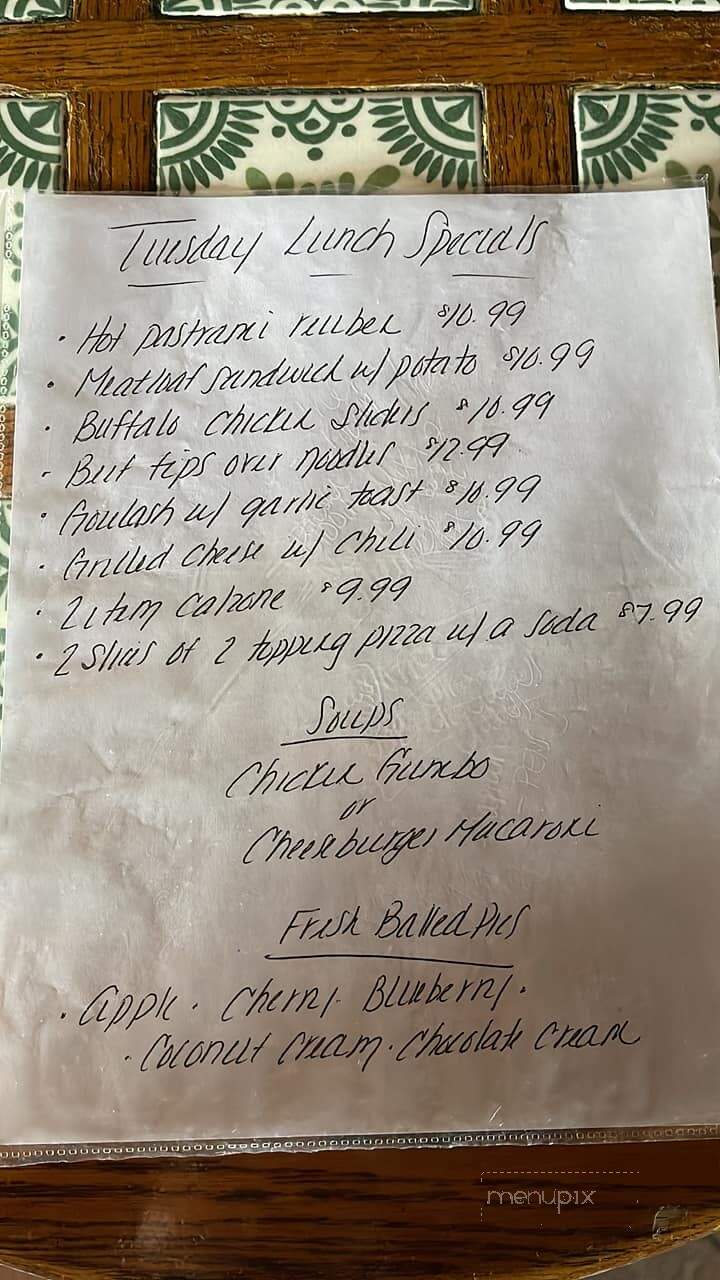 Tuesday Lunch Specials
· Hot pastrami reuben $10.99
· Meatloaf sandwich w/ potato $10.99
· Buffalo chicken sliders $10.99
· Beef tips over noodles $12.99
· Goulash w/ garlic toast $10.99
· Grilled cheese w/ chili $10.99
· 2 item calzone $9.99
· 2 slices of 2 topping pizza w/ a soda $7.99
Soups
Chicken Gumbo
or
Cheeseburger Macaroni
Fresh Baked Pies
· Apple · Cherry · Blueberry ·
· Coconut Cream · Chocolate Cream
menupix